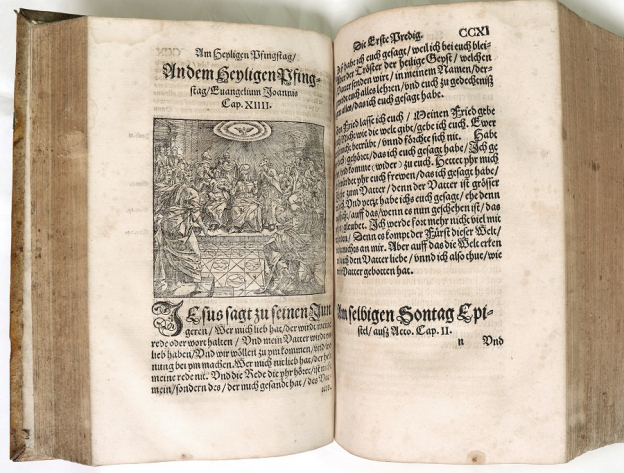 Am Heyligen Pfingstag/
An dem Heyligen Pfing-
stag/Euangelium Joannis
Cap. XIIII.
JEsus sagt zu seinen Jun
geren/ Wer mich lieb hat/der wirdt meine
rede oder wort halten/ Vnd mein Vatter wirdt yn
lieb haben/Vnd wir wöllen zu ym kommen/vnd wo
nung bei ym machen. Wer mich nit lieb hat/der helt
meine rede nit. Vnd die Rede die yhr höret/ist nit
mein/sondern des/ der mich gesandt hat/ des Vat-
Die Erste Predig. CCXI
habe ich euch gesagt/ weil ich bei euch blei-
der Tröster der heilige Geyst/ welchen
Vatter senden wirt/ in meinem Namen/der-
euch alles lehren/vnd euch zu gedechtniß
alles/das ich euch gesagt habe.
Fried lasse ich euch/ Meinen Fried gebe
Nicht wie die welt gibt/gebe ich euch. Ewer
betrübt/ vnnd förchte sich nit. Habt
gehöret/das ich euch gesagt habe/ Ich ge
vnd komme (wider) zu euch. Hettet yhr mich
würdet yhr euch frewen/das ich gesagt habe/
zum Vatter/ denn der Vatter ist grösser
Vnd yetzt habe ichs euch gesagt/ ehe denn
auff das/wenn es nun geschehen ist/das
glaubet. Ich werde fort mehr nicht viel mit
reden/ Denn es kompt der Fürst dieser Welt/
nichts an mir. Aber auff das die Welt erken
ich den Vatter liebe/ vnnd ich also thue/wie
Vatter gebotten hat.
Am selbigen Sontag Epi-
stel/ ausz Acto. Cap. II.
n Vnd